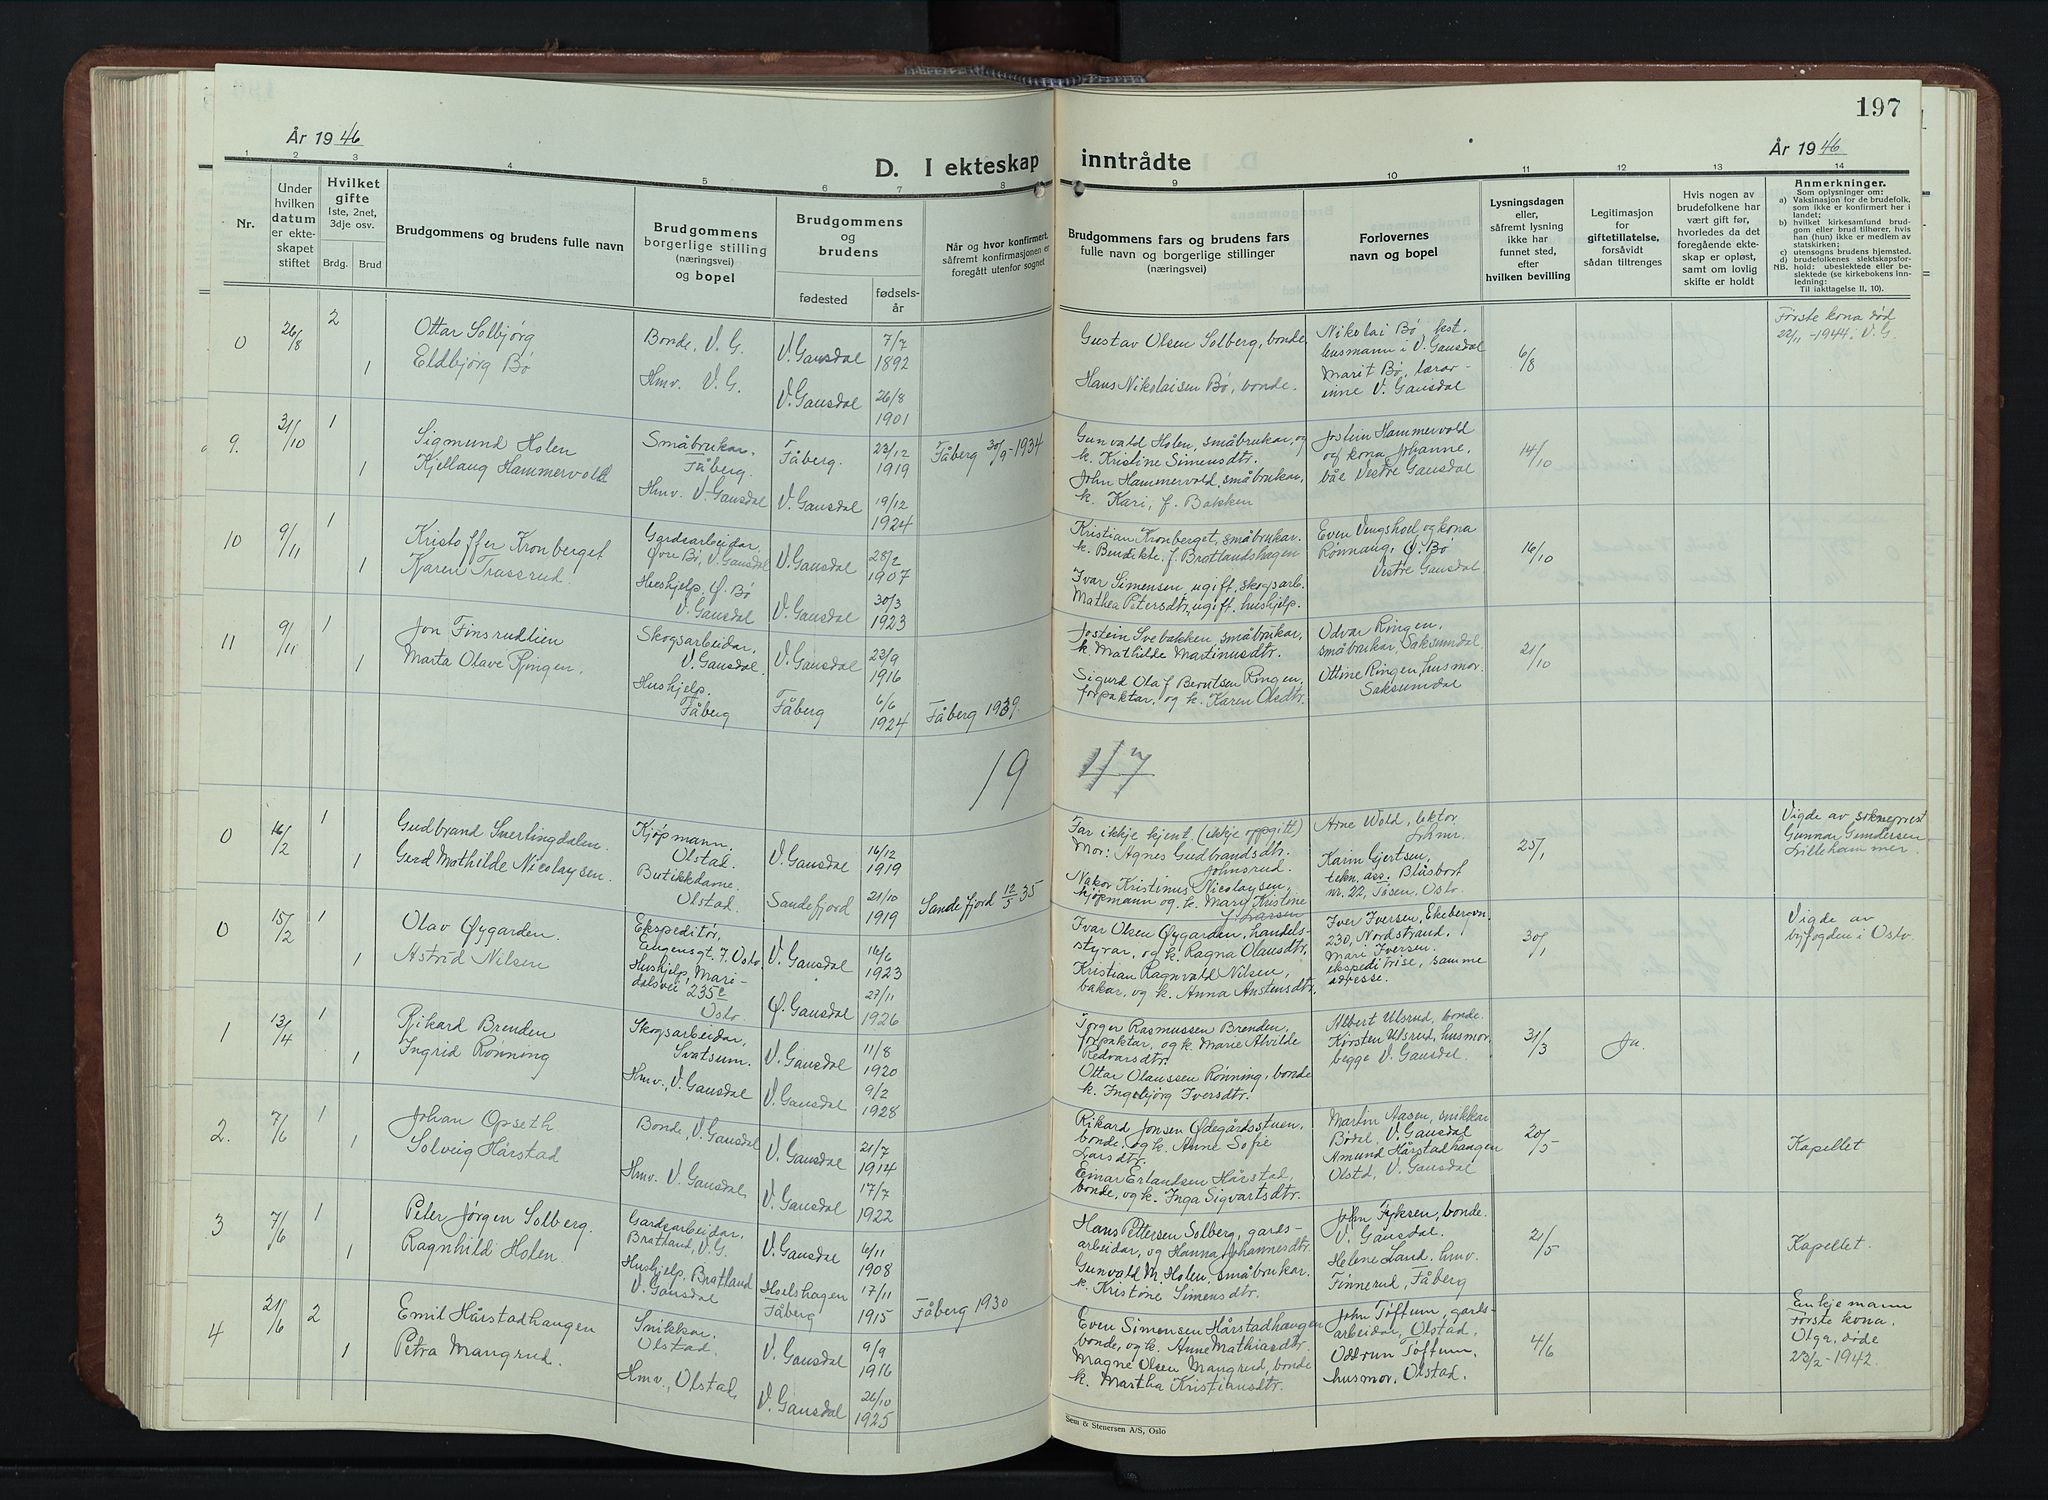 197
År 1946
D. I ekteskap inntrådte
År 1946
1 2 3 4 5 6 7 8 9 10 11 12 13 14
Nr.
Under hvilken datum er ekteskapet stiftet
Hvilket gifte
1ste, 2net, 3dje osv.
Brdg. Brud
Brudgommens og brudens fulle navn
Brudgommens borgerlige stilling (næringsvei) og bopel
Brudgommens og brudens
fødested
fødselsår
Når og hvor konfirmert, såfremt konfirmasjonen er foregått utenfor sognet
Brudgommens fars og brudens fars fulle navn og borgerlige stillinger (næringsvei)
Forlovernes navn og bopel
Lysningsdagen eller, såfremt lysning ikke har funnet sted, efter hvilken bevilling
Legitimasjon for giftetillatelse, forsåvidt sådan tiltrenges
Hvis nogen av brudefolkene har vært gift før, hvorledes da det foregående ekteskap er opløst, samt om lovlig skifte er holdt
Anmerkninger.
Som oplysninger om:
a) Vaksinasjon for de brudefolk, som ikke er konfirmert her i landet;
b) hvilket kirkesamfund brudgom eller brud tilhører, hvis han (hun) ikke er medlem av statskirken;
c) utensogns brudens hjemsted.
d) brudefolkenes slektskapsforhold: ubeslektede eller beslektede (se kirkebokens innledning:
NB.
Til iakttagelse II, 10).
0 26/8 2 Ottar Solbjørg Bonde, V. G. V. Gausdal 7/7 1892
Gustav Olsen Solberg, bonde
Nikolai Bø, kst. lensmann i V. Gausdal
6/8
Første kona død 22/11-1944 i V. G.
1 Eldbjørg Bø Hmv. V. G. V. Gausdal 26/8 1901
Hans Nikolaisen Bø, bonde.
Marit Bø, lærarinne V. Gausdal
9. 31/10 1 Sigmund Holen Småbrukar, Fåberg. Fåberg. 23/12 1919 Fåberg 30/9-1934
Gunvald Holen, småbrukar, og k. Kristine Simensdtr.
Jostein Hammervold og kona Johanne, båe Vestre Gausdal
14/10
1 Kjellaug Hammervold Hmv. V. Gausdal V. Gausdal 19/12 1924
John Hammervold, småbrukar, k. Kari, f. Bakken
10 9/11 1 Kristoffer Kronberget Gardsarbeidar, Øvre Bø, V. Gausdal V. Gausdal 28/2 1907
Kristian Kronberget, småbrukar. k. Bendikte, f. Bratlandshagen
Even Vengshoel og kona Rønnaug, Ø. Bø Vestre Gausdal
16/10
1 Karen Trassrud. Hushjelp, Ø. Bø V. Gausdal V. Gausdal 30/3 1923
Ivar Simensen, ugift, skogsarb. Mathea Petersdtr, ugift, hushjelp.
11 9/11 1 Jon Finsrudlien Skogsarbeidar, V. Gausdal. V. Gausdal 23/9 1916
Jostein Svebakken, småbrukar, k. Mathilde Martinusdtr.
Odvar Ringen, småbrukar, Saksumdal
21/10
1 Marta Olave Ringen. Hushjelp. Fåberg Fåberg 6/6 1924 Fåberg 1939.
Sigurd Olaf Berntsen Ringen, forpaktar, og k. Karen Olsdtr.
Ottine Ringen, husmor. Saksumdal
19 47
0 16/2 1 Gudbrand Sverlingdalen. Kjøpmann. Olstad. V. Gausdal 16/12 1919
Far ikkje kjent (ikkje oppgitt) Mor: Agnes Gudbrandsdtr. Johnsrud.
Arne Wold, lektor Lhmr.
25/1
Vigde av sokneprest Gunnar Gundersen Lillehammer.
1 Gerd Mathilde Nicolaysen. Butikkdame. Olstad. Sandefjord 21/10 1919 Sandefjord 12/5 35
Nakor Kristinus Nicolaysen, kjøpmann og k. Mary Kristine f. Larsen
Karin Gjertsen, tekn. ass. Blåsbort nr. 22, Tåsen, Oslo.
0 15/2 1 Olav Øygarden. Ekspeditør, Eugensgt. 7. Oslo. V. Gausdal 16/6 1923
Ivar Olsen Øygarden, handelsstyrar, og k. Ragna Olausdtr,
Iver Iversen, Ekebergvn 230, Nordstrand.
30/1
Vigde av byfogden i Oslo.
1 Astrid Nilsen Hushjelp, Maridalsvei 235c Oslo. Ø. Gausdal 27/11 1926
Kristian Ragnvald Nilsen, bakar, og k. Anna Anstensdtr.
Mari Iversen. ekspeditrise, samme adresse.
1 13/4 1 Rikard Brenden Skogsarbeidar, Svatsum. V. Gausdal 11/8 1920
Torger Rasmussen Brenden, forpaktar, og k. Marie Alvilde Redvarsdtr.
Albert Ulsrud, bonde. Kirsten Ulsrud, husmor, begge V. Gausdal.
31/3 Ja.
1 Ingrid Rønning Hmv., V. Gausdal V. Gausdal 9/2 1928
Ottar Olaussen Rønning, bonde k. Ingebjørg Iversdtr.
2. 7/6 1 Johan Opseth Bonde, V. Gausdal V. Gausdal 21/7 1914
Rikard Jonsen Ødegårdsstuen, bonde, og k. Anne Sofie Larsdtr.
Martin Aasen, snikkar Bødal, V. Gausdal
20/5
Kapellet
1 Solveig Hårstad Hmv. V. Gausdal. V. Gausdal 17/7 1922
Einar Erlandsen Hårstad, bonde, og k. Inga Sigvartsdtr.
Amund Hårstadhaugen Olstad, V. Gausdal
3 7/6 1 Peter Jørgen Solberg. Gardsarbeidar, Bratland, V. G. V. Gausdal 6/11 1908
Hans Pettersen Solberg, gardsarbeidar, og Hanna Johannesdtr.
John Fyksen, bonde. V. Gausdal.
21/5
Kapellet.
1 Ragnhild Holen. Hushjelp, Bratland V. Gausdal Hoelshagen Fåberg 17/11 1915 Fåberg 1930
Gunvald M. Holen, småbrukar. k. Kristine Simensdtr.
Helene Land, hmv. Finnerud, Fåberg
4 21/6 2 Emil Hårstadhaugen Snikkar. Olstad. V. Gausdal 9/9 1916
Even Simensen Hårstadhaugen bonde, og k. Anne Mathiasdtr.
John Toftum, gardsarbeidar, Olstad.
4/6
Enkjemann Første kona, Olga, døde 23/2-1942.
1 Petra Mangrud. Hmv., Olstad, V. Gausdal 26/10 1925
Magne Olsen Mangrud, bonde k. Martha Kristiansdtr.
Oddrun Toftum, husmor, Olstad.
Sem & Stenersen A/S, Oslo